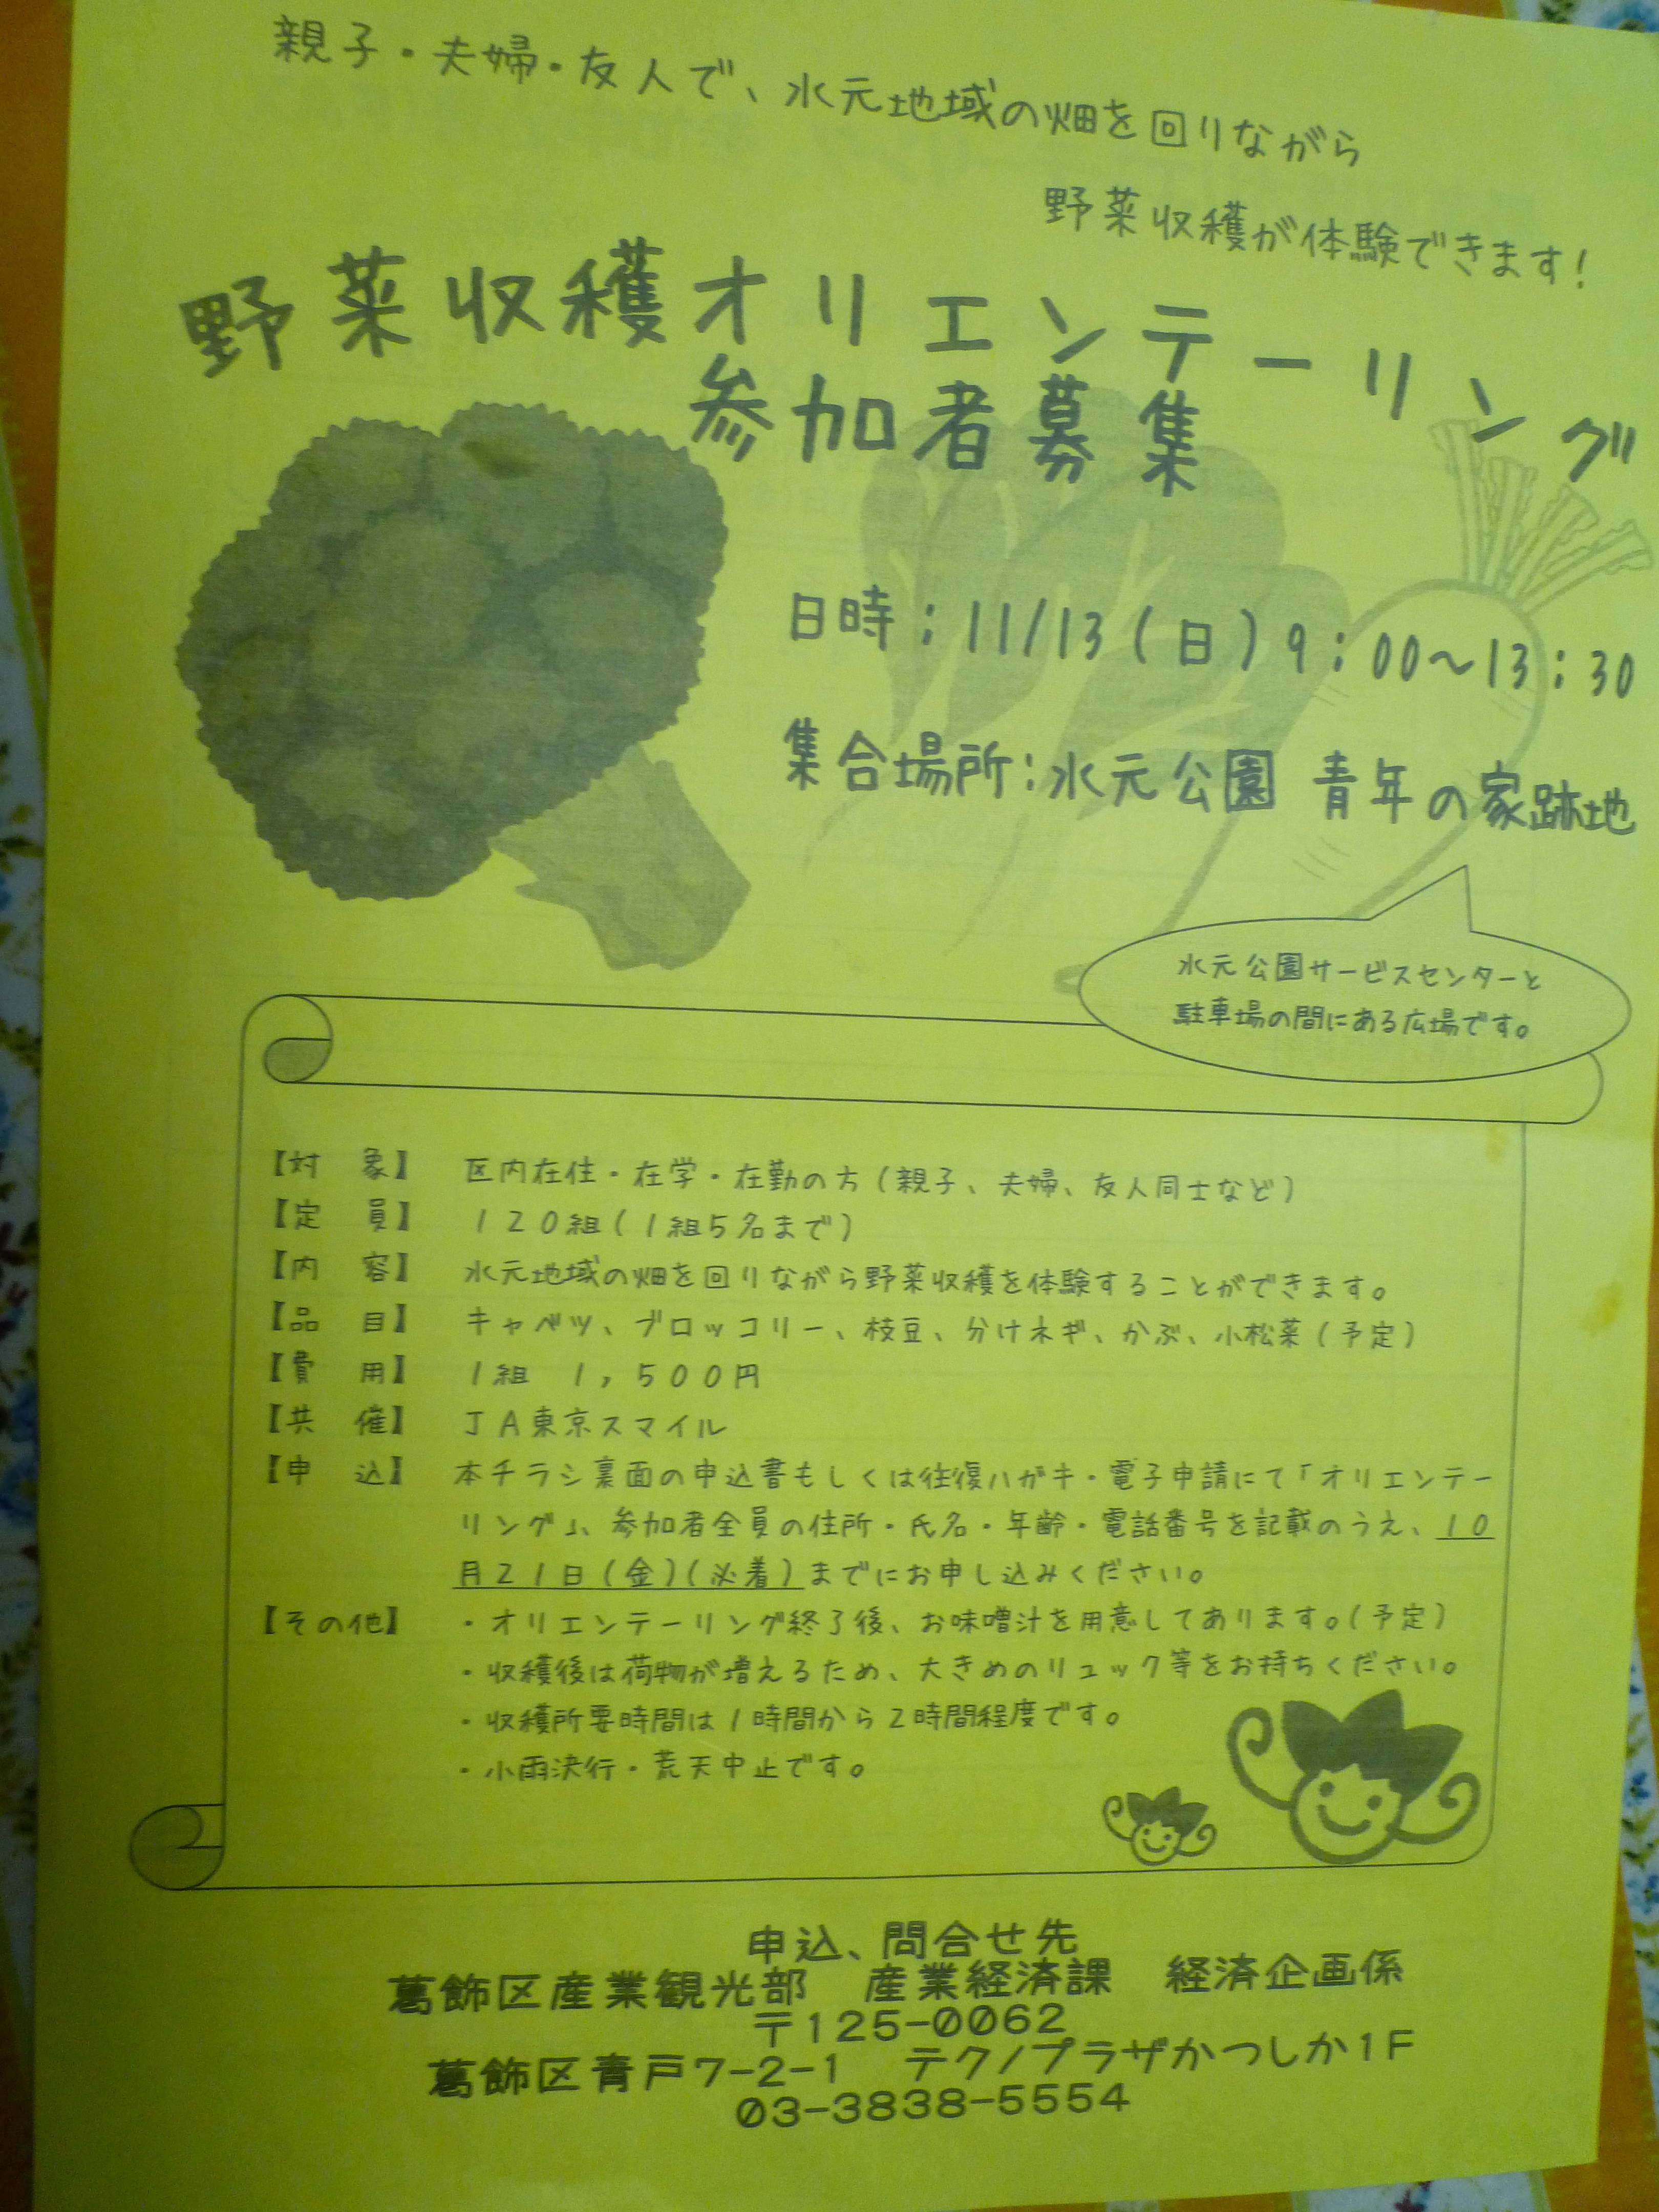 親子・夫婦・友人で、水元地域の畑を回りながら
野菜収穫が体験できます!
野菜収穫オリエンテーリング
参加者募集
日時:11/13(日)9:00~13:30
集合場所:水元公園 青年の家跡地
水元公園サービスセンターと
駐車場の間にある広場です。
【対 象】 区内在住・在学・在勤の方(親子、夫婦、友人同士など)
【定 員】 120組(1組5名まで)
【内 容】 水元地域の畑を回りながら野菜収穫を体験することができます。
【品 目】 キャベツ、ブロッコリー、枝豆、分けネギ、かぶ、小松菜(予定)
【費 用】 1組 1,500円
【共 催】 JA東京スマイル
【申 込】 本チラシ裏面の申込書もしくは往復ハガキ・電子申請にて「オリエンテー
リング」、参加者全員の住所・氏名・年齢・電話番号を記載のうえ、10
月21日(金)(必着)までにお申し込みください。
【その他】 ・オリエンテーリング終了後、お味噌汁を用意してあります。(予定)
・収穫後は荷物が増えるため、大きめのリュック等をお持ちください。
・収穫所要時間は1時間から2時間程度です。
・小雨決行・荒天中止です。
申込、問合せ先
葛飾区産業観光部 産業経済課 経済企画係
〒125-0062
葛飾区青戸7-2-1 テクノプラザかつしか1F
03-3838-5554